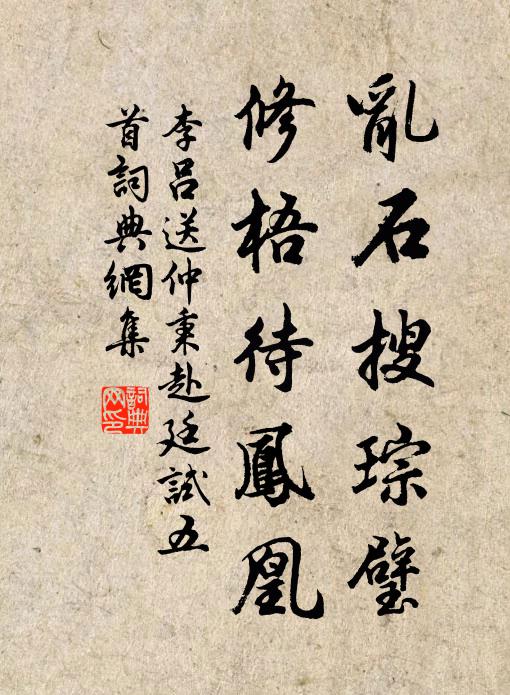 亂石搜琮璧
修梧待鳳凰
李呂送仲秉赴廷試五
首詞典網集
詞典
网印